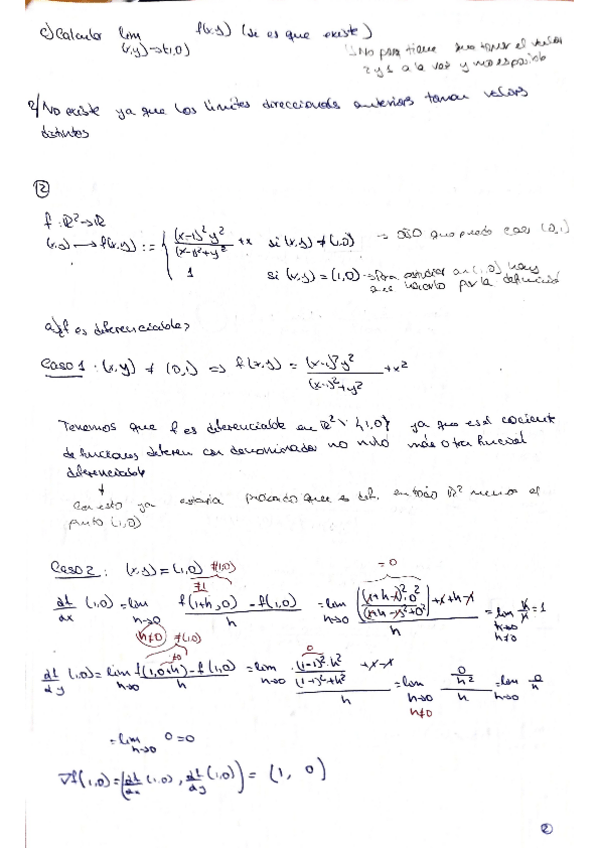 c) Calcular lim f(x,y) (si es que existe)
(x,y)→(1,0)
No para tiene que tomar el valor
2 y 1 a la vez y no es posible
No existe ya que los límites direccionales anteriores toman valores
distintos
②
f : ℝ²→ℝ
(x,y) ⟶ f(x,y) := { (x-1)²y² / (x-1)²+y² +x si (x,y) ≠ (1,0) ⇒ que puedo caer (0,1)
1 si (x,y) = (1,0) → Para estudiar en (1,0) hay
que hacerlo por la definición
a) f es diferenciable?
Caso 1 : (x,y) ≠ (0,1) ⇒ f(x,y) = (x-1)²y² / (x-1)²+y² +x²
Tenemos que f es diferenciable en ℝ² \ {1,0} ya que es el cociente
de funciones diferen con denominador no nulo más otra función
diferenciable
Con esto ya estaría probando que es en todo ℝ² menos el
punto (1,0)
Caso 2 : (x,y) = (1,0) ≠(1,0) = 0
df/dx (1,0) = lim h→0 f(1+h,0) - f(1,0) / h = lim h→0 [(1+h-1)²·0² / (1+h-1)²+0²] +1+h-1 / h = lim h→0 h≠0 h/h = 1
h≠0 ≠(1,0)
df/dy (1,0) = lim h→0 f(1,0+h) - f(1,0) / h = lim h→0 (1-1)²·h² / (1-1)²+h² +1-1 / h = lim h→0 h≠0 0/h² / h = lim h→0 0/h
= lim h→0 0 = 0
∇f(1,0) = (df/dx (1,0), df/dy (1,0)) = (1, 0)
②